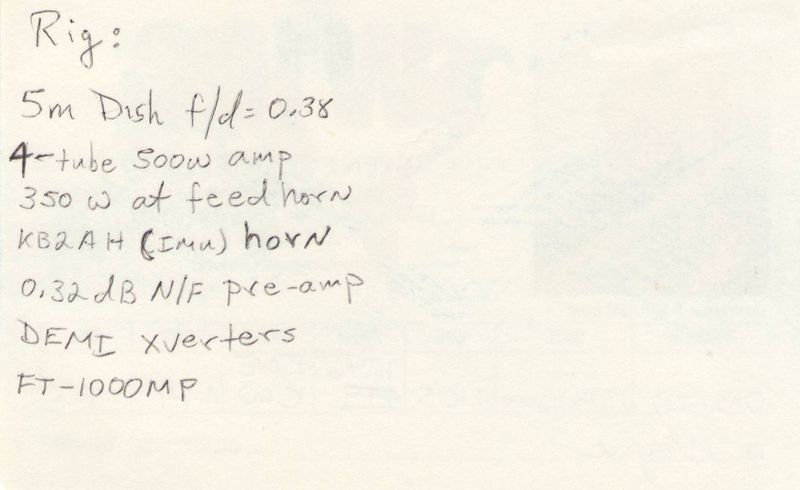 Rig:
5m Dish f/d= 0.38
4-tube 500w amp
350 w at feedhorn
KB2AH (Imu) horn
0.32dB N/F pre-amp
DEMI xverters
FT-1000MP